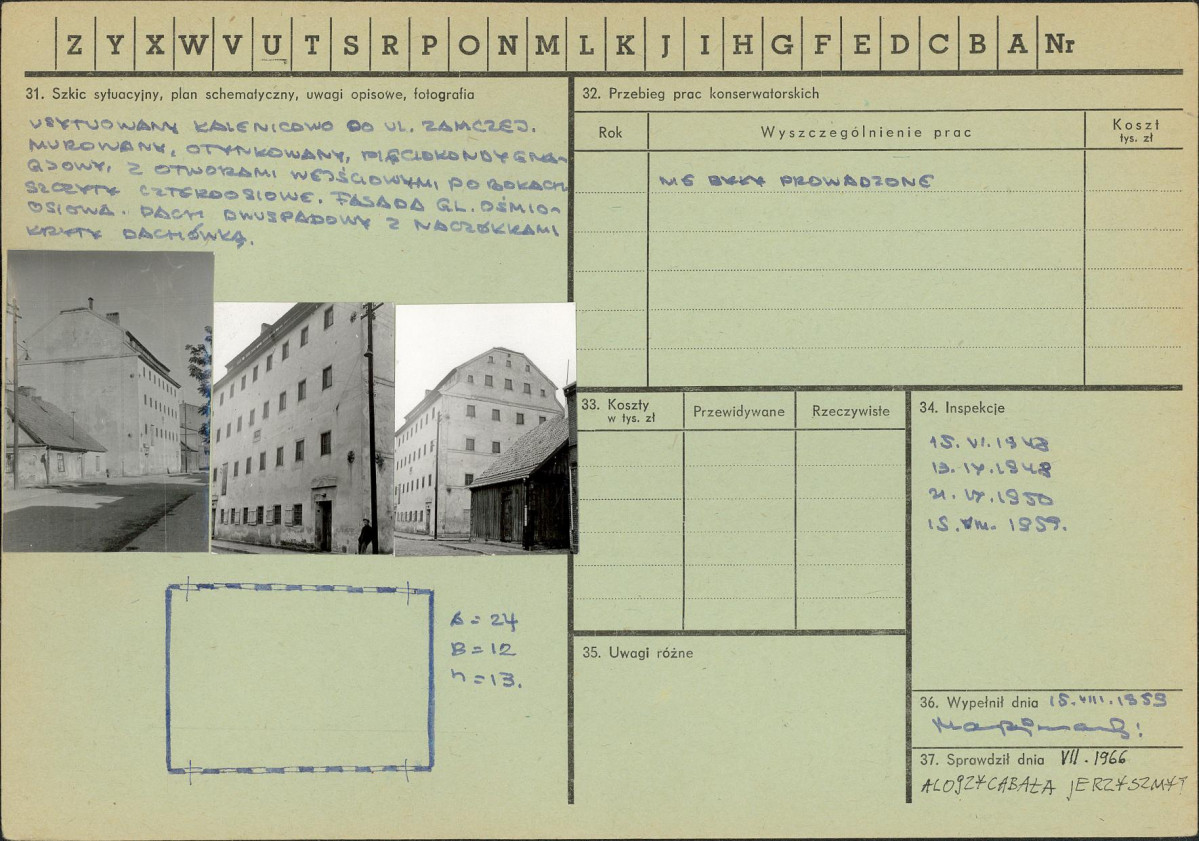 Z Y X W V U T S R P O N M L K J I H G F E D C B A Nr
31. Szkic sytuacyjny, plan schematyczny, uwagi opisowe, fotografia
USYTUOWANY KALENICOWO DO UL. ZAMCZEJ.
MUROWANY, OTYNKOWANY, PIĘCIOKONDYGNA-
CJOWY, Z OTWORAMI WEJŚCIOWYMI PO BOKACH
SZCZYTY CZTEROOSIOWE. FASADA GL. OŚMIO-
OSIOWA. DACH DWUSPADOWY Z NACZÓŁKAMI
KRYTY DACHÓWKĄ.
A = 24
B = 12
h = 13.
32. Przebieg prac konserwatorskich
Rok
Wyszczególnienie prac
Koszt
tys. zł
NIE BYŁY PROWADZONE
33. Koszty
w tys. zł
Przewidywane
Rzeczywiste
34. Inspekcje
15. VI. 1948
21. 1950
15. VIII. 1959.
35. Uwagi różne
36. Wypełnił dnia 15. VIII. 1959
37. Sprawdził dnia VII. 1966
ALOJZY CABAŁA JERZY SZMYT